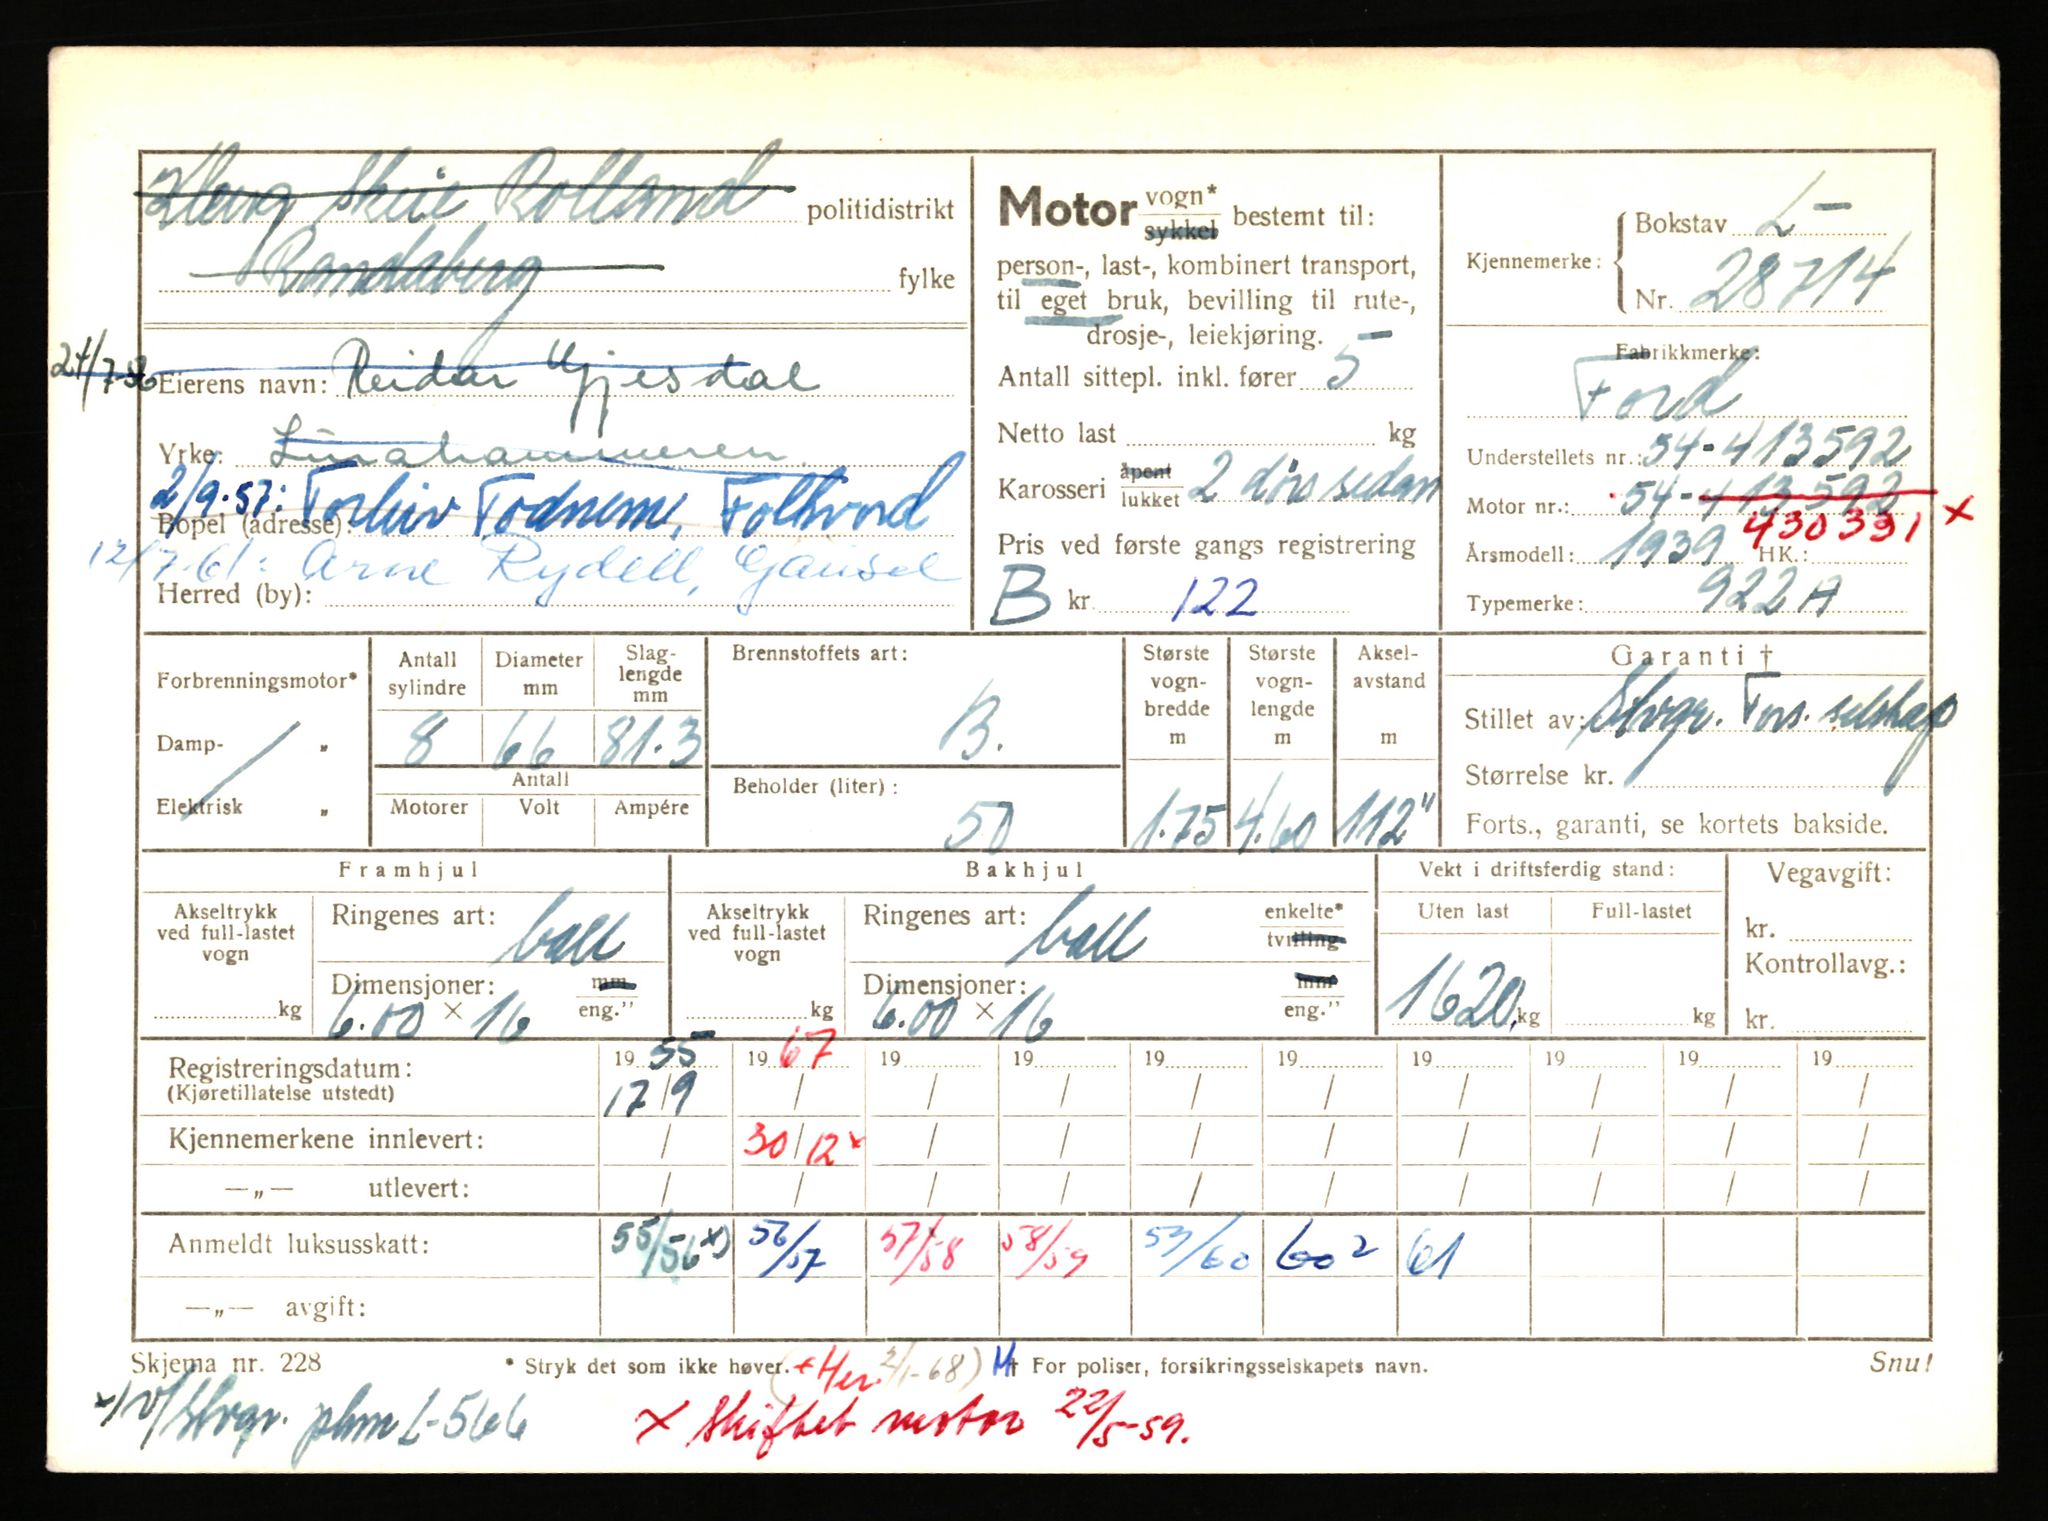 Rolland politidistrikt
Randaberg fylke
24/7-56 Eierens navn: Reidar Gjesdal
Yrke:
2/9-57: Torleiv Todnem, Folkvord
Bopel (adresse):
12/7-61: Arne Rydell, Gausel
Herred (by):
Motor vogn* sykkel bestemt til:
person-, last-, kombinert transport,
til eget bruk, bevilling til rute-,
drosje-, leiekjøring.
Antall sittepl. inkl. fører 5
Netto last kg
Karosseri åpent lukket 2 dørs sedan
Pris ved første gangs registrering
B kr 122
Kjennemerke: Bokstav L-
Nr. 28714
Fabrikkmerke:
Ford
Understellets nr.: 54-413592
Motor nr.: 54-413592
430331 x
Årsmodell: 1939 HK.:
Typemerke: 922A
Forbrenningsmotor*
Damp- "
Elektrisk "
Antall sylindre 8
Diameter mm 66
Slag-lengde mm 81.3
Antall
Motorer Volt Ampére
Brennstoffets art: B.
Beholder (liter): 50
Største vogn-bredde m 1.75
Største vogn-lengde m 4.60
Aksel-avstand m 112"
Garanti †
Stillet av: Stvgr. Fors. selskap
Størrelse kr.
Forts., garanti, se kortets bakside.
Framhjul
Akseltrykk ved full-lastet vogn kg
Ringenes art: ball
Dimensjoner: mm eng."
6.00 × 16
Bakhjul
Akseltrykk ved full-lastet vogn kg
Ringenes art: ball enkelte* tvilling
Dimensjoner: mm eng."
6.00 × 16
Vekt i driftsferdig stand:
Uten last Full-lastet
1620 kg kg
Vegavgift:
kr.
Kontrollavg.:
kr.
Registreringsdatum: 19 55 19 67 19 19 19 19 19 19 19 19
(Kjøretillatelse utstedt) 17/9 / / / / / / / / /
Kjennemerkene innlevert: / 30/12 x / / / / / / / /
—„— utlevert: / / / / / / / / / /
Anmeldt luksusskatt: 55/56 x) 56/57 57/58 58/59 59/60 60² 61
—„— avgift:
Skjema nr. 228 * Stryk det som ikke høver. + Her. 2/1-68) M † For poliser, forsikringsselskapets navn. Snu!
x) v/Stvgr. pkm L-566
x Skiftet motor 22/5-59.